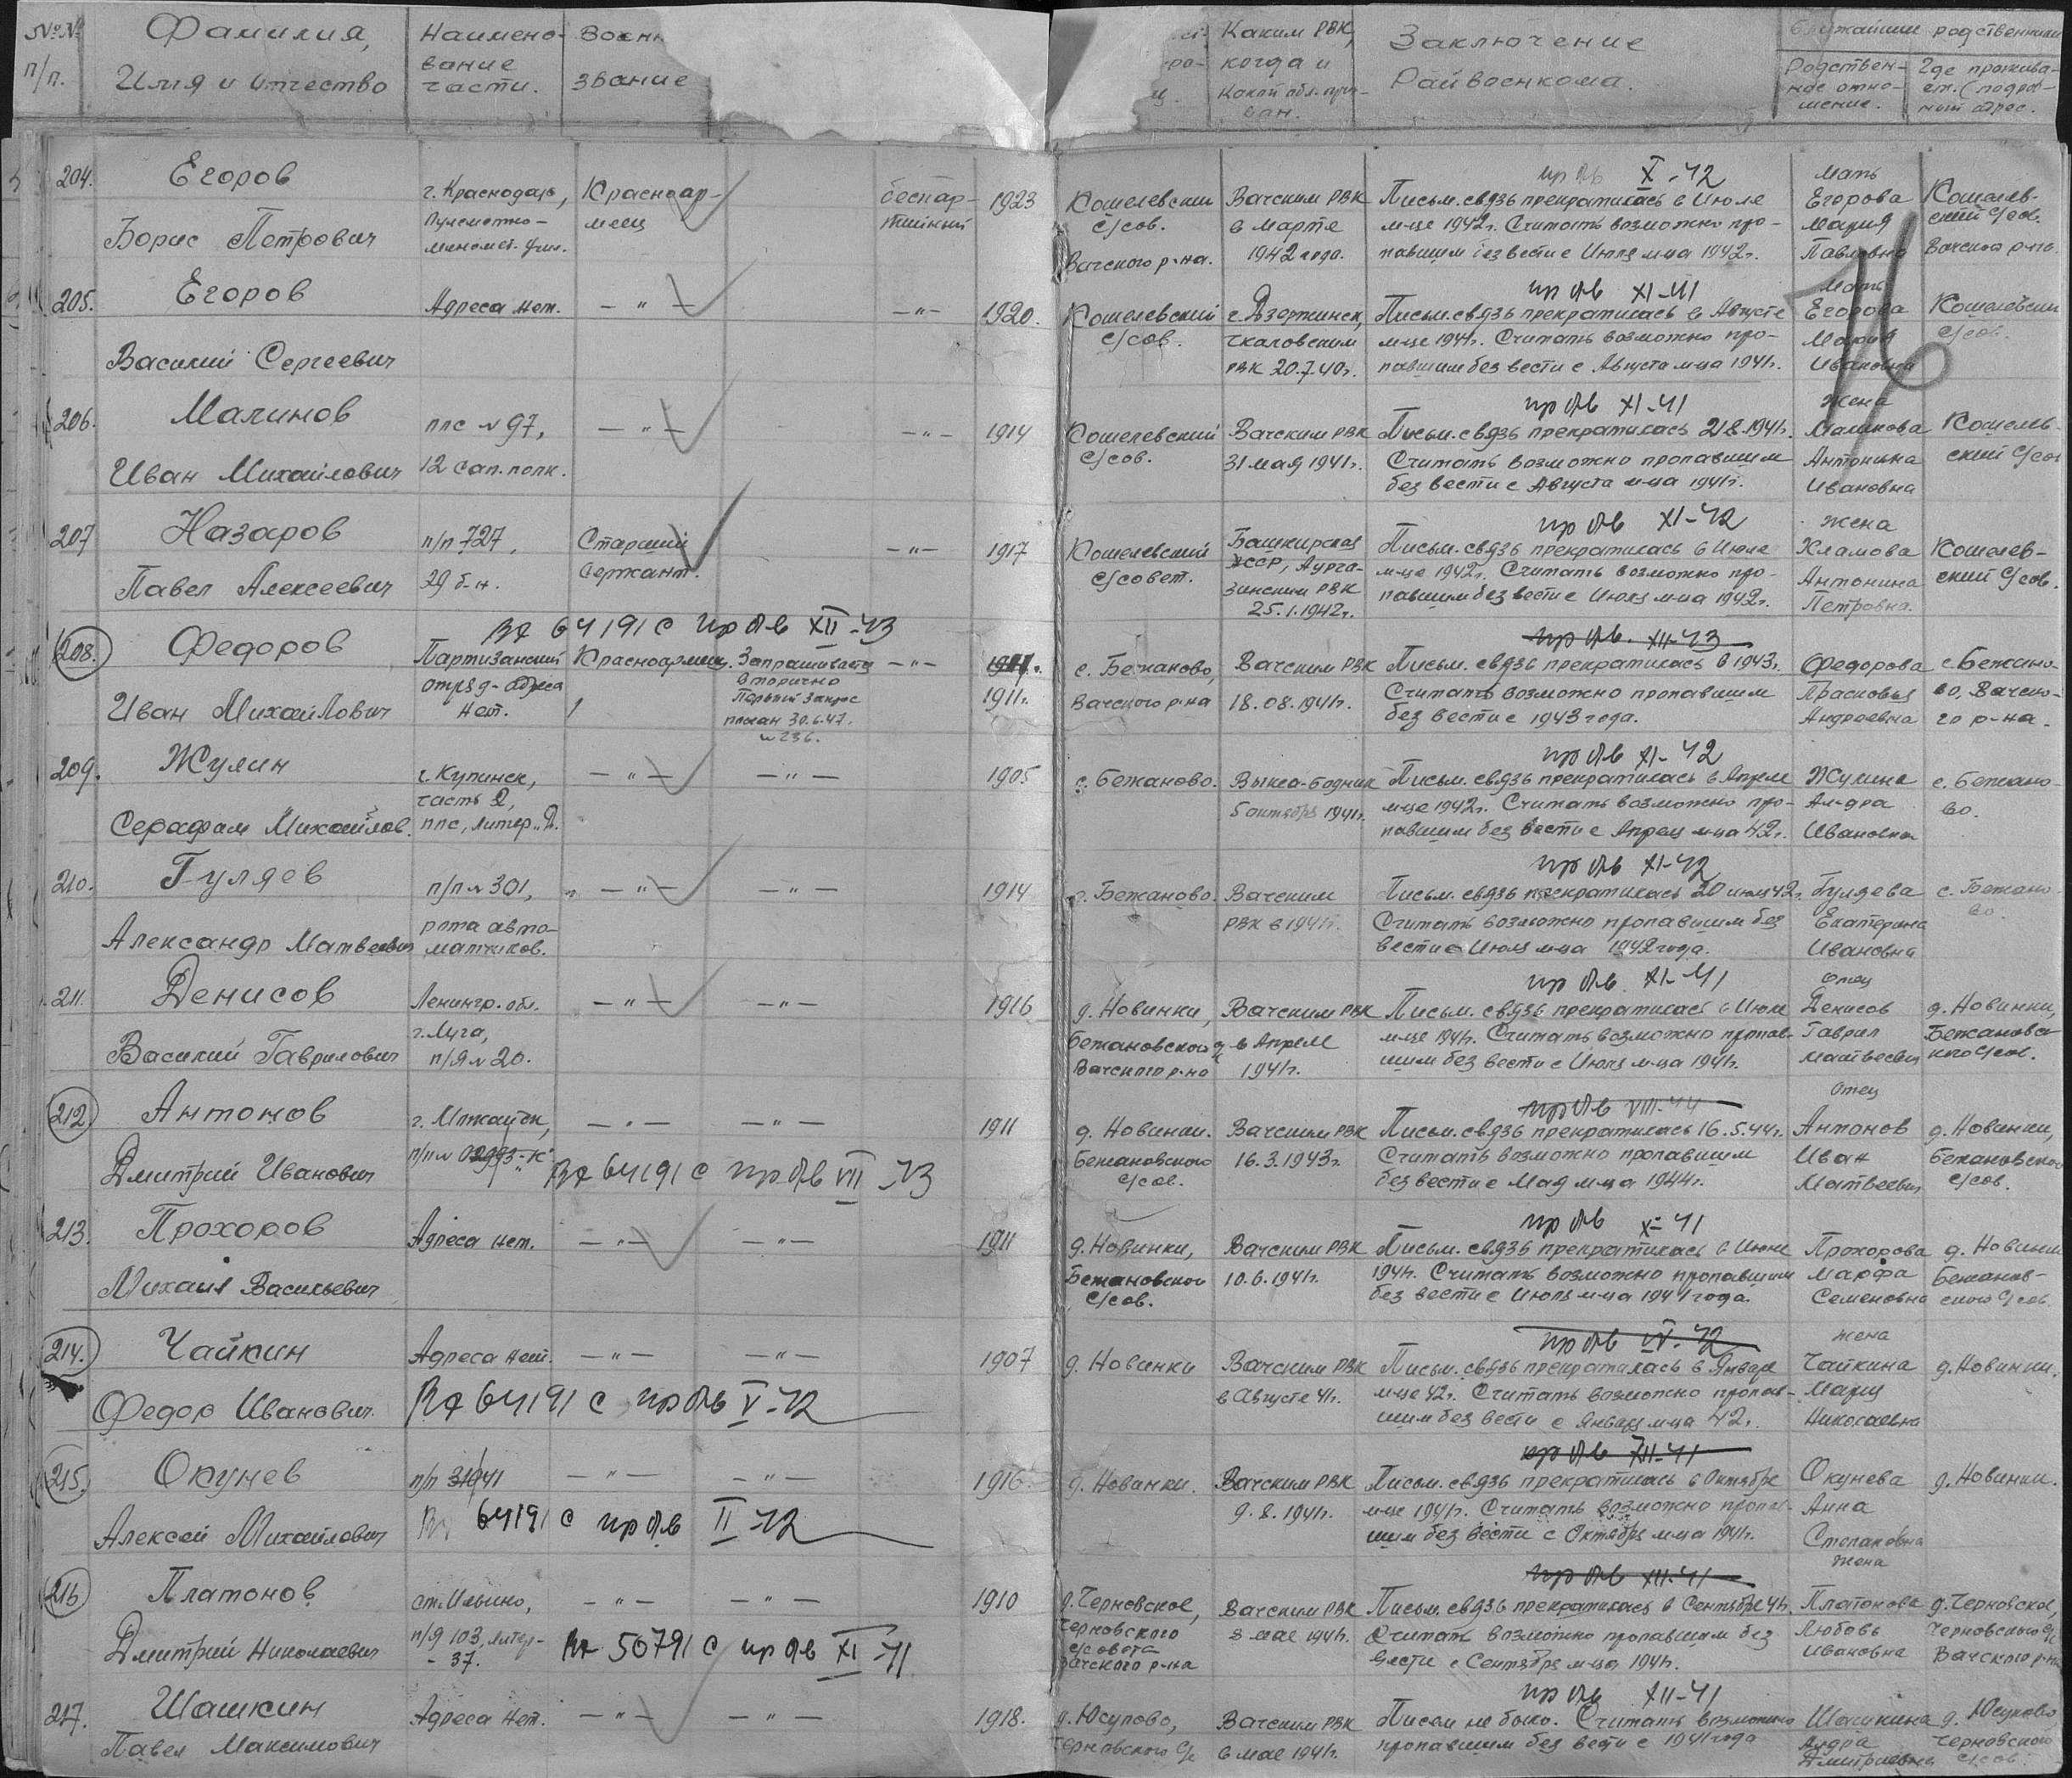 №№ п/п. Фамилия, Имя и отчество Наименование части. Военн звание Каким РВК, когда и какой обл. призван. Заключение Райвоенкома. Ближайшие родственники
Родственное отношение. Где проживает (подробный адрес.
204. Егоров г. Краснодар, Красноар- беспар- 1923 Кошелевский Вачским РВК Письм. связь прекратилась в Июле мать Егорова Кошелев-
пр Отв X-42
Борис Петрович Пулеметно- миномет. учил. меец тийный с/сов. Вачского р-на. в марте 1942 года. м-це 1942г. Считать возможно про- Мария ский с/сов.
павшим без вести с Июля м-ца 1942г. Павловна Вачского р-на.
205. Егоров Адреса нет. — " — — " — 1920. Кошелевский с/сов. г. Дзержинск, Письм. связь прекратилась в Августе мать Егорова Кошелевский с/сов.
пр Отв XI-41
Василий Сергеевич Чкаловским м-це 1941г. Считать возможно про- Мария
РВК 20.7.40г. павшим без вести с Августа м-ца 1941г. Ивановна
206. Малинов ппс № 97, — " — — " — 1914 Кошелевский с/сов. Вачским РВК Письм. связь прекратилась 21.8.1941г. жена Малинова Кошелев-
пр Отв XI-41
Иван Михайлович 12 сап. полк. 31 мая 1941г. Считать возможно пропавшим Антонина ский с/сов
без вести с Августа м-ца 1941г. Ивановна
207 Назаров п/п 727, Старший — " — 1917 Кошелевский с/совет. Башкирская Письм. связь прекратилась в Июле жена Хламова Кошелев-
пр Отв XI-42
Павел Алексеевич 29 б-н. Сержант. АССР, Аурга- м-це 1942г. Считать возможно про- Антонина ский с/сов.
зинским РВК 25.1.1942г. павшим без вести с Июля м-ца 1942г. Петровна.
Вх 64191 с пр Отв XII-43
208. Федоров Партизанский Красноармеец. Запрашивается — " — с. Бежаново, Вачским РВК Письм. связь прекратилась в 1943г. Федорова с. Бежано-
пр Отв. XII-43
Иван Михайлович отряд - адреса нет. вторично Первый запрос послан 30.6.47. № 236. 1911г. Вачского р-на 18.08.1941г. Считать возможно пропавшим Прасковья во, Вачско-
без вести с 1943 года. Андреевна го р-на.
209. Жулин г. Купинск, — " — — " — 1905 с. Бежаново. Выкса-Водник Письм. связь прекратилась в Апреле Жулина с. Бежано-
пр Отв XI-42
Серафам Михайлов. часть 2, ппс, литер "Д". 5 октября 1941г. м-це 1942г. Считать возможно про- Ал-дра во.
павшим без вести с Апреля м-ца 42г. Ивановна
210. Гуляев п/п № 301, — " — — " — 1914 с. Бежаново. Вачским Письм. связь прекратилась 20 июля 42г. Гуляева с. Бежано-
пр Отв XI-42
Александр Матвеевич рота авто- матчиков. РВК в 1941г. Считать возможно пропавшим без Екатерина во.
вести с Июля м-ца 1942 года. Ивановна
211. Денисов Ленингр. обл. — " — — " — 1916 д. Новинки, Вачским РВК Письм. связь прекратилась в Июле отец Денисов д. Новинки,
пр Отв. XI-41
Василий Гаврилович г. Луга, п/я № 20. Бежановского Вачского р-на в Апреле 1941г. м-це 1941г. Считать возможно пропав- Гаврил Бежановс-
шим без вести с Июля м-ца 1941г. Матвеевич кого с/сов.
212 Антонов г. Можайск, — " — — " — 1911 д. Новинки. Вачским РВК Письм. связь прекратилась 16.5.44г. отец Антонов д. Новинки,
пр Отв VIII-44
Дмитрий Иванович п/п № 02993-К Вх 64191 с пр Отв VII-43 Бежановского с/сов. 16.3.1943г. Считать возможно пропавшим Иван Бежановского с/сов.
без вести с Мая м-ца 1944г. Матвеевич
213. Прохоров Адреса нет. — " — — " — 1911 д. Новинки, Вачским РВК Письм. связь прекратилась в Июле Прохорова д. Новинки
пр Отв X-41
Михаил Васильевич Бежановского с/сов. 10.6.1941г. 1941г. Считать возможно пропавшим Марфа Бежанов-
без вести с Июля м-ца 1941 года. Семеновна ского с/сов.
214. Чайкин Адреса нет. — " — — " — 1907 д. Новинки Вачским РВК Письм. связь прекратилась в Январе жена Чайкина д. Новинки.
Федор Иванович Вх 64191 с пр Отв V-42 в Августе 41г. м-це 42г. Считать возможно пропав- Мария
шим без вести с Января м-ца 42г. Николаевна
215. Окунев п/п — " — — " — 1916 д. Новинки. Вачским РВК Письм. связь прекратилась в Октябре Окунева д. Новинки.
пр Отв XII-41
Алексей Михайлович Вх 64191 с пр Отв II-42 9.8.1941г. м-це 1941г. Считать возможно пропав- Анна
шим без вести с Октября м-ца 1941г. Степановна
216 Платонов ст. Ильино, — " — — " — 1910 д. Черновское, Вачским РВК Письм. связь прекратилась в Сентябре 41г. жена Платонова д. Черновское,
пр Отв XII-41
Дмитрий Николаевич п/я 103, литер- - 37. Вх 50791 с пр Отв XI-41 Черновского с/совета Вачского р-на в мае 1941г. Считать возможно пропавшим без Любовь Черновского с/с
вести с Сентября м-ца 1941г. Ивановна Вачского р-на
217. Шашкин Адреса нет. — " — — " — 1918. д. Юсупово, Вачским РВК Писем не было. Считать возможно Шашкина д. Юсупово
пр Отв XII-41
Павел Максимович Черновского с/с в мае 1941г. пропавшим без вести с 1941 года Дмитриевна Черновского с/сов.